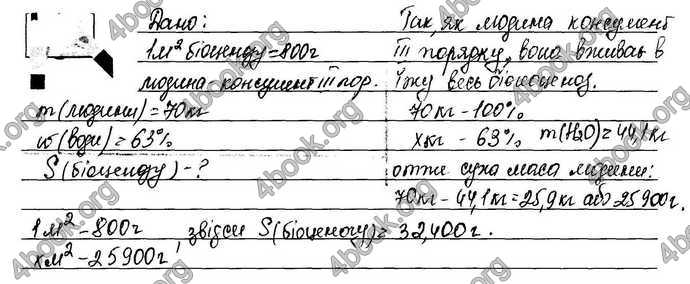 Дано:
1м² біоценозу=800г
людина-консумент III пор.
m(людини)=70кг
w(води)=63%
S(біоценозу)-?
Так, як людина консумент
III порядку, вона вживає в
їжу весь біоценоз.
70кг-100%
xкг - 63% m(H₂O)=44,1кг
отже суха маса людини:
70кг-44,1кг=25,9кг або 25900г.
1м²-800г
xм²-25900г, звідси S(біоценозу)=32,400г.
4book.org